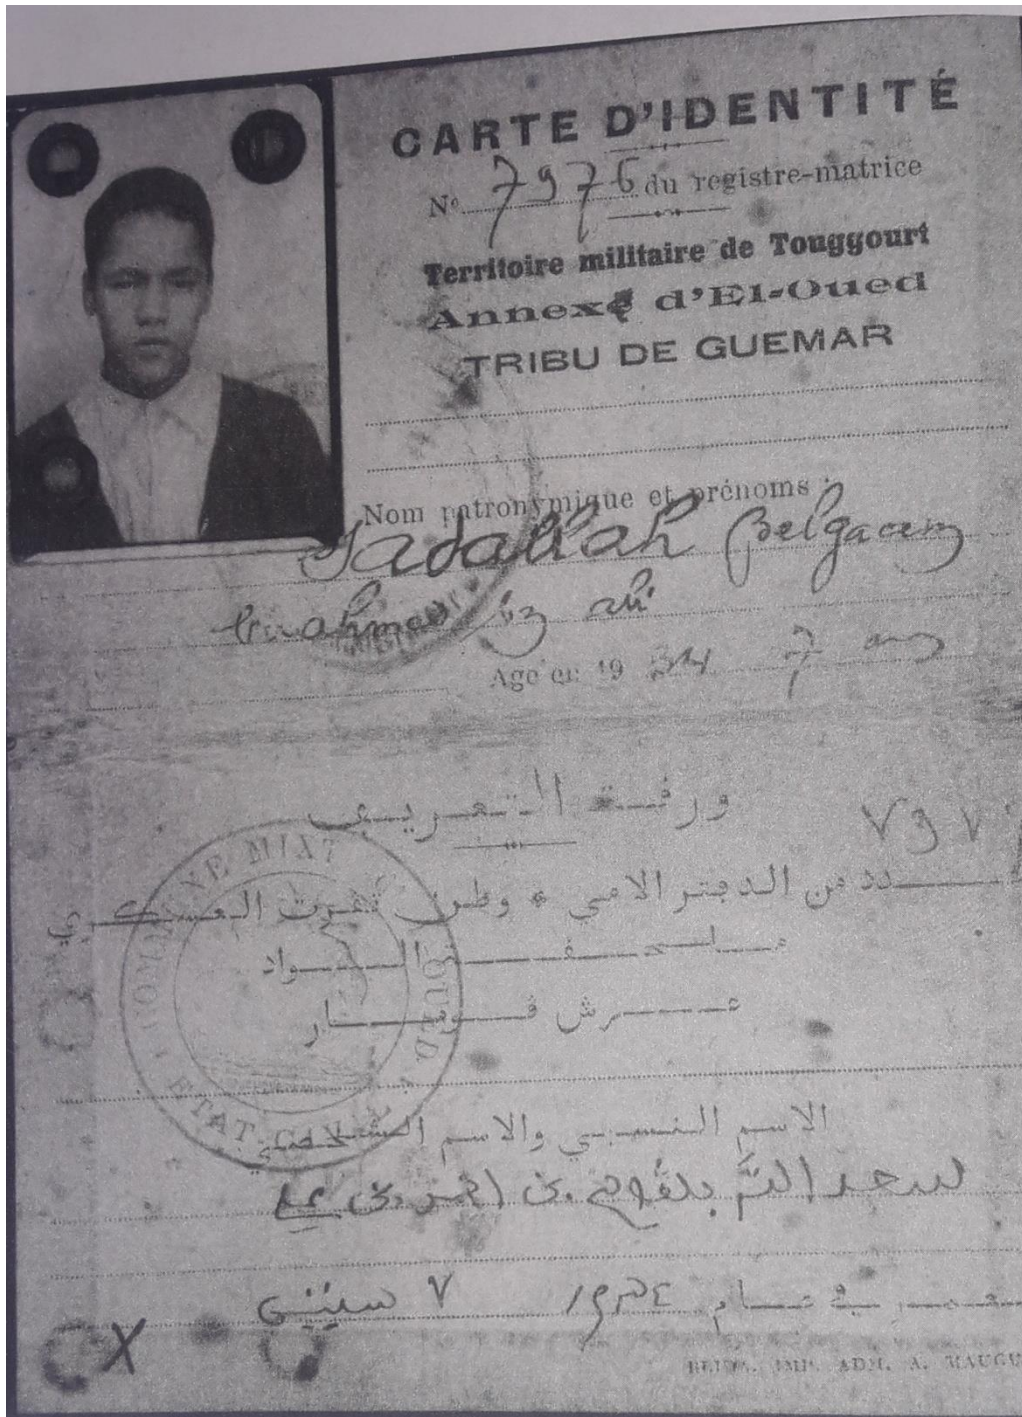 CARTE D'IDENTITÉ
No 7976 du registre-matrice
Territoire militaire de Touggourt
Annexe d'El-Oued
TRIBU DE GUEMAR
Nom patronymique et prénoms :
Sadallah Belgacem
ben ahmed ben ali
Agé en 1934 7 ans
ورقة التعريف
٧٩٧
عدد من الدفتر الامي * وطن تقرت العسكري
ملحقة الواد
عرش قمار
الاسم النسبي والاسم الشخصي
سعد الله بلقاسم بن احمد بن علي
عمره في عام ١٩٣٤ ٧ سنين
COMMUNE MIXTE
OUED
ETAT
IMP. ADM. A.
X